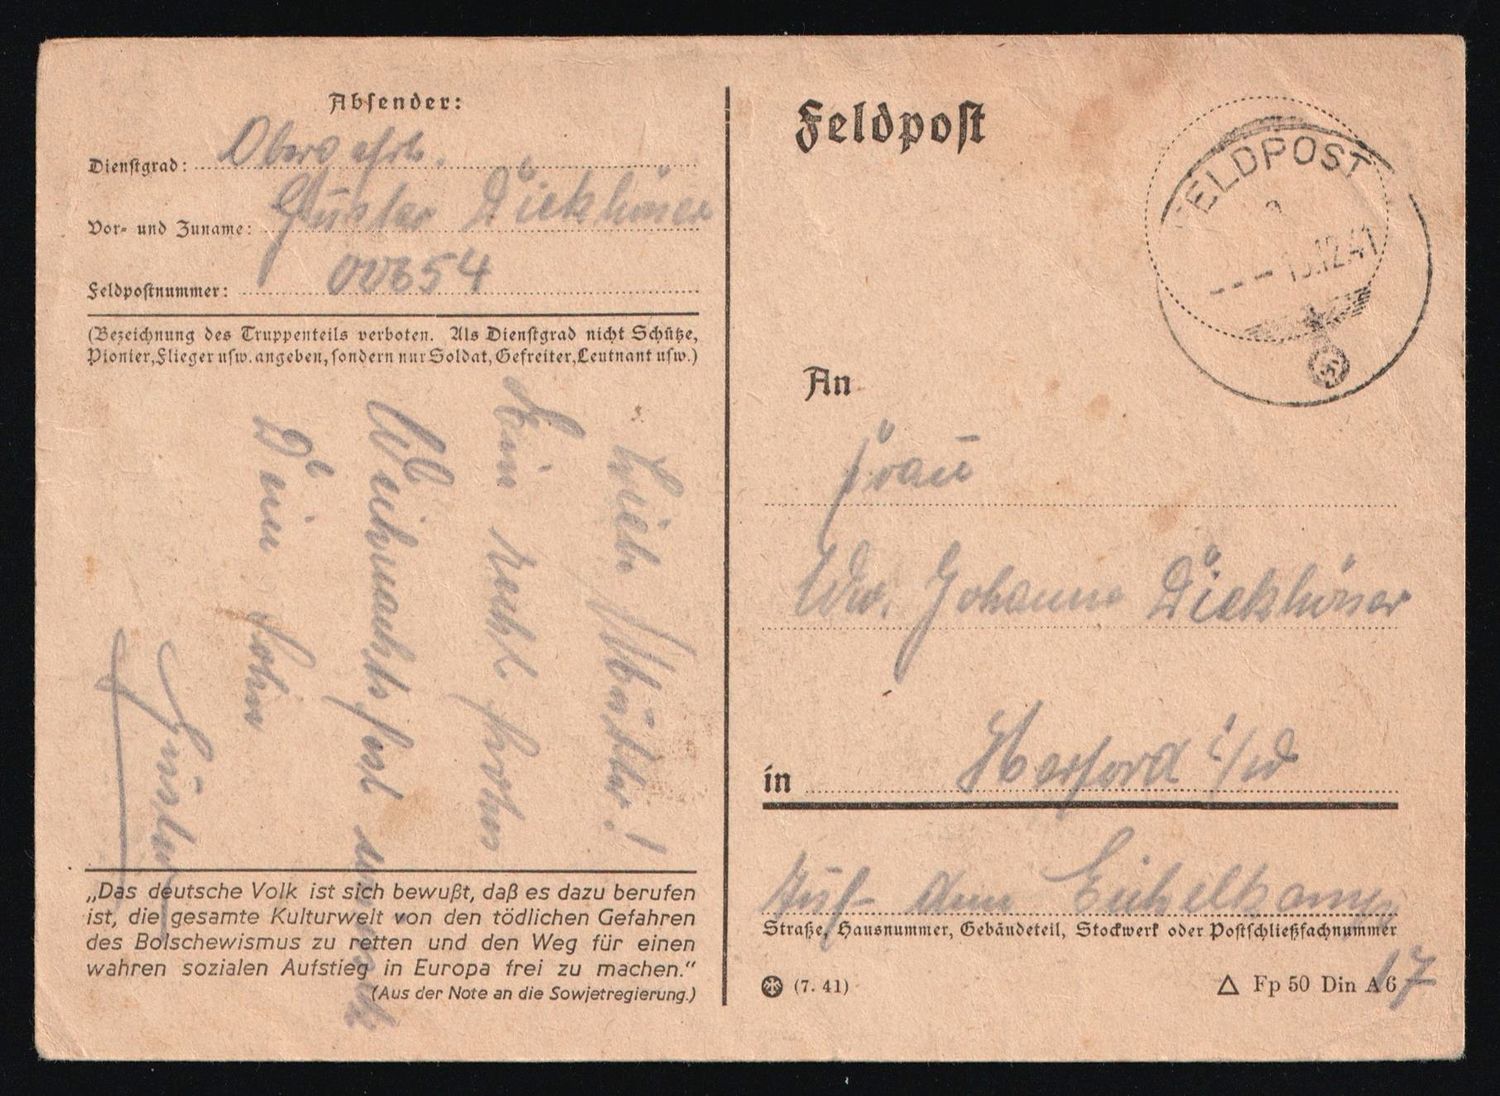 Absender:
Dienstgrad: Obergefrt.
Vor- und Zuname: Gustav Dieckhöner
Feldpostnummer: 00654
(Bezeichnung des Truppenteils verboten. Als Dienstgrad nicht Schütze,
Pionier, Flieger usw. angeben, sondern nur Soldat, Gefreiter, Leutnant usw.)
Liebe Mutter!
Ein recht frohes
Weihnachtsfest wünscht
Dein Sohn
Gustav
„Das deutsche Volk ist sich bewußt, daß es dazu berufen
ist, die gesamte Kulturwelt von den tödlichen Gefahren
des Bolschewismus zu retten und den Weg für einen
wahren sozialen Aufstieg in Europa frei zu machen.“
(Aus der Note an die Sowjetregierung.)
Feldpost
FELDPOST
.12.41
An
Frau
Ww. Johanne Dieckhöner
in Herford i/W
Auf dem Eickelkamp
Straße, Hausnummer, Gebäudeteil, Stockwerk oder Postschließfachnummer
17
(7. 41)
△ Fp 50 Din A 6